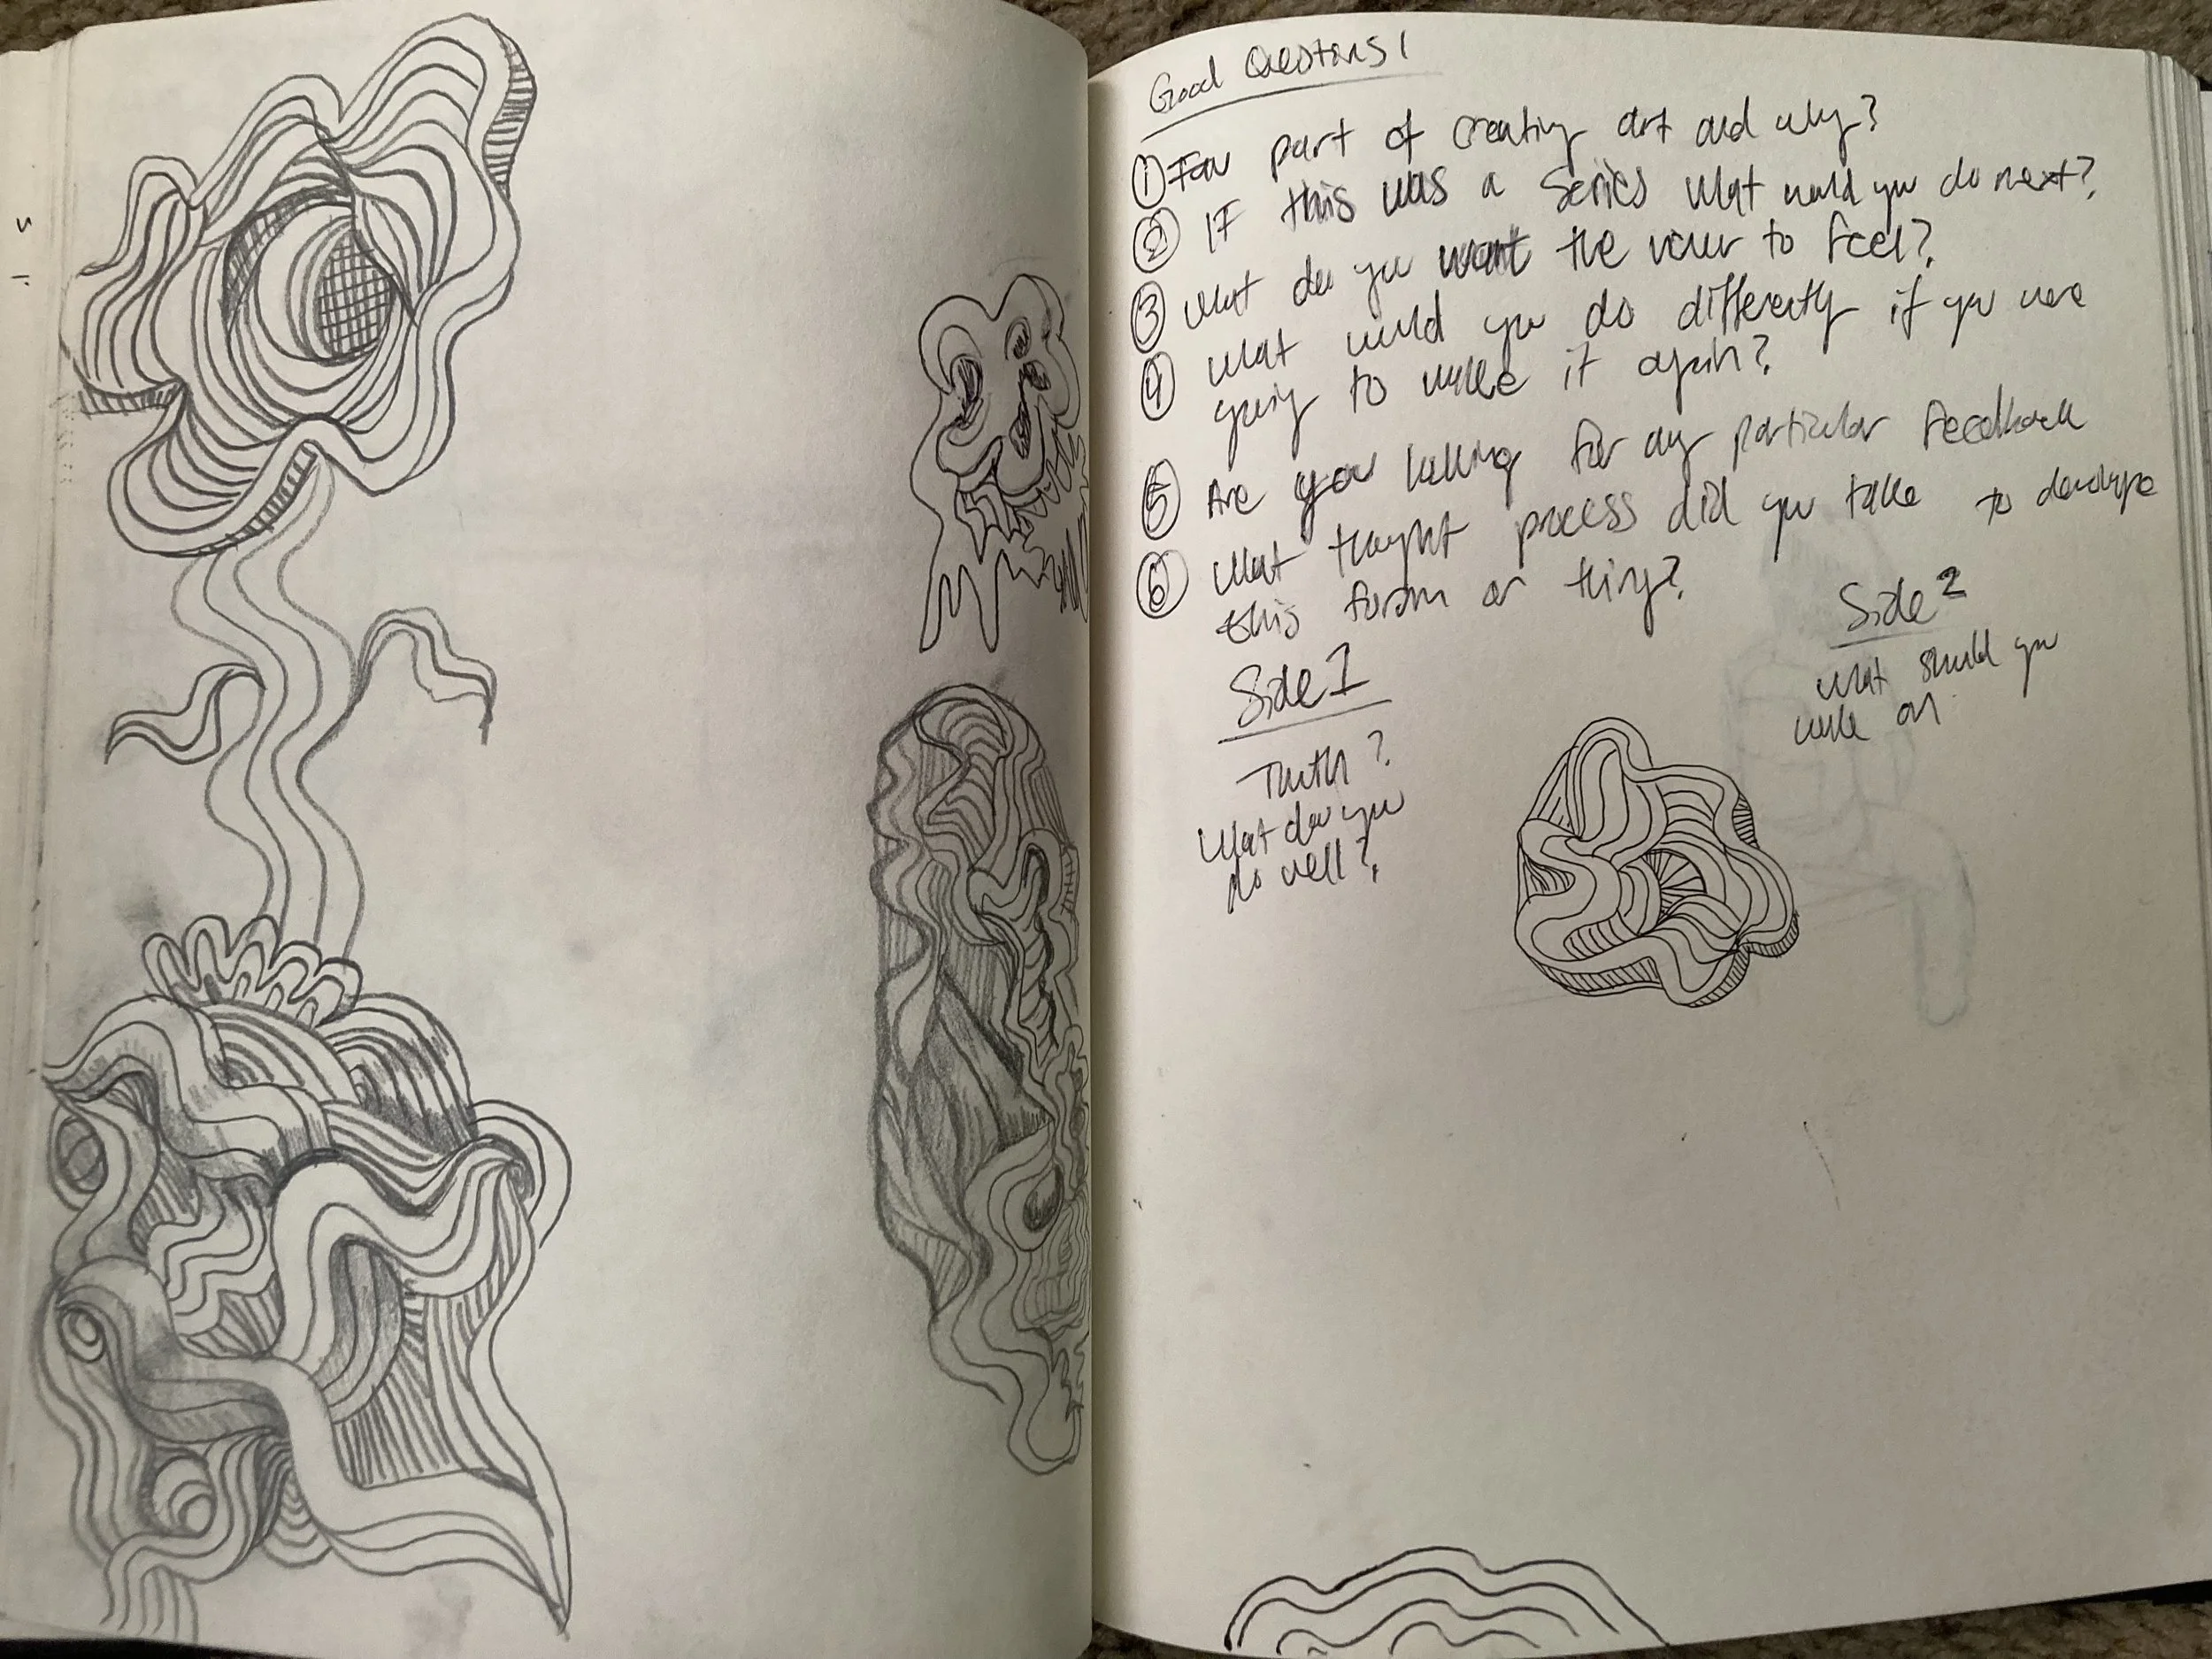 Good Questons!
① Fav part of creating art and why?
② IF this was a series what would you do next?
③ what do you want the viewer to feel?
④ what would you do differently if you were
going to make it again?
⑤ Are you looking for any particular feedback
⑥ what thought process did you take to develope
this form or thing?
Side 1
Truth?
What do you
do well?
Side 2
what should you
work on